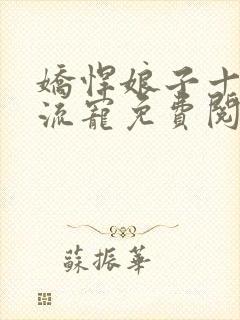 嬌悍娘子十
流寵免費閱
蘇振華